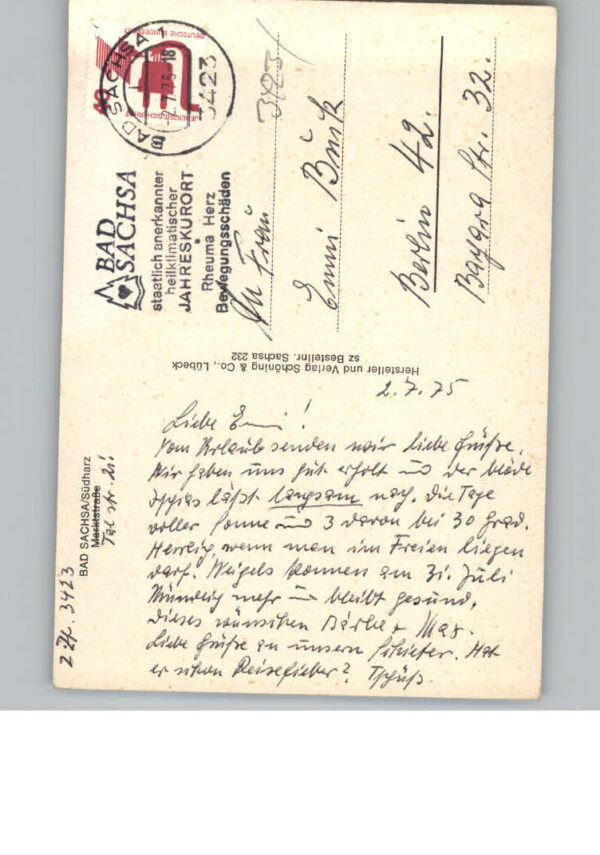 DEUTSCHE BUNDESPOST
40
JEDERZEIT SICHERHEIT
BAD SACHSA 1
-2.7.75-18
3423
BAD
SACHSA
staatlich anerkannter
heilklimatischer
JAHRESKURORT
Rheuma Herz
Bewegungsschäden
3423
An Frau
Emmi Bunk
Berlin 42.
Str. 32.
Hersteller und Verlag Schöning & Co., Lübeck
sz Bestellnr. Sachsa 232
BAD SACHSA/Südharz
Marktstraße
Tal str. 21
2 Zt. 3423
2.7.75
Liebe Emmi!
Vom Urlaub senden wir liebe Grüße.
Wir haben uns gut erholt und der blöde
Ischias läßt langsam nach. Die Tage
voller Sonne und 3 davon bei 30 Grad.
Herrlich, wenn man im Freien liegen
darf. Weigels kommen am 31. Juli
Mündlich mehr und bleibt gesund,
dieses wünschen Bärbel + Max.
Liebe Grüße an unsern
er schon Reisefieber? Tschüß.